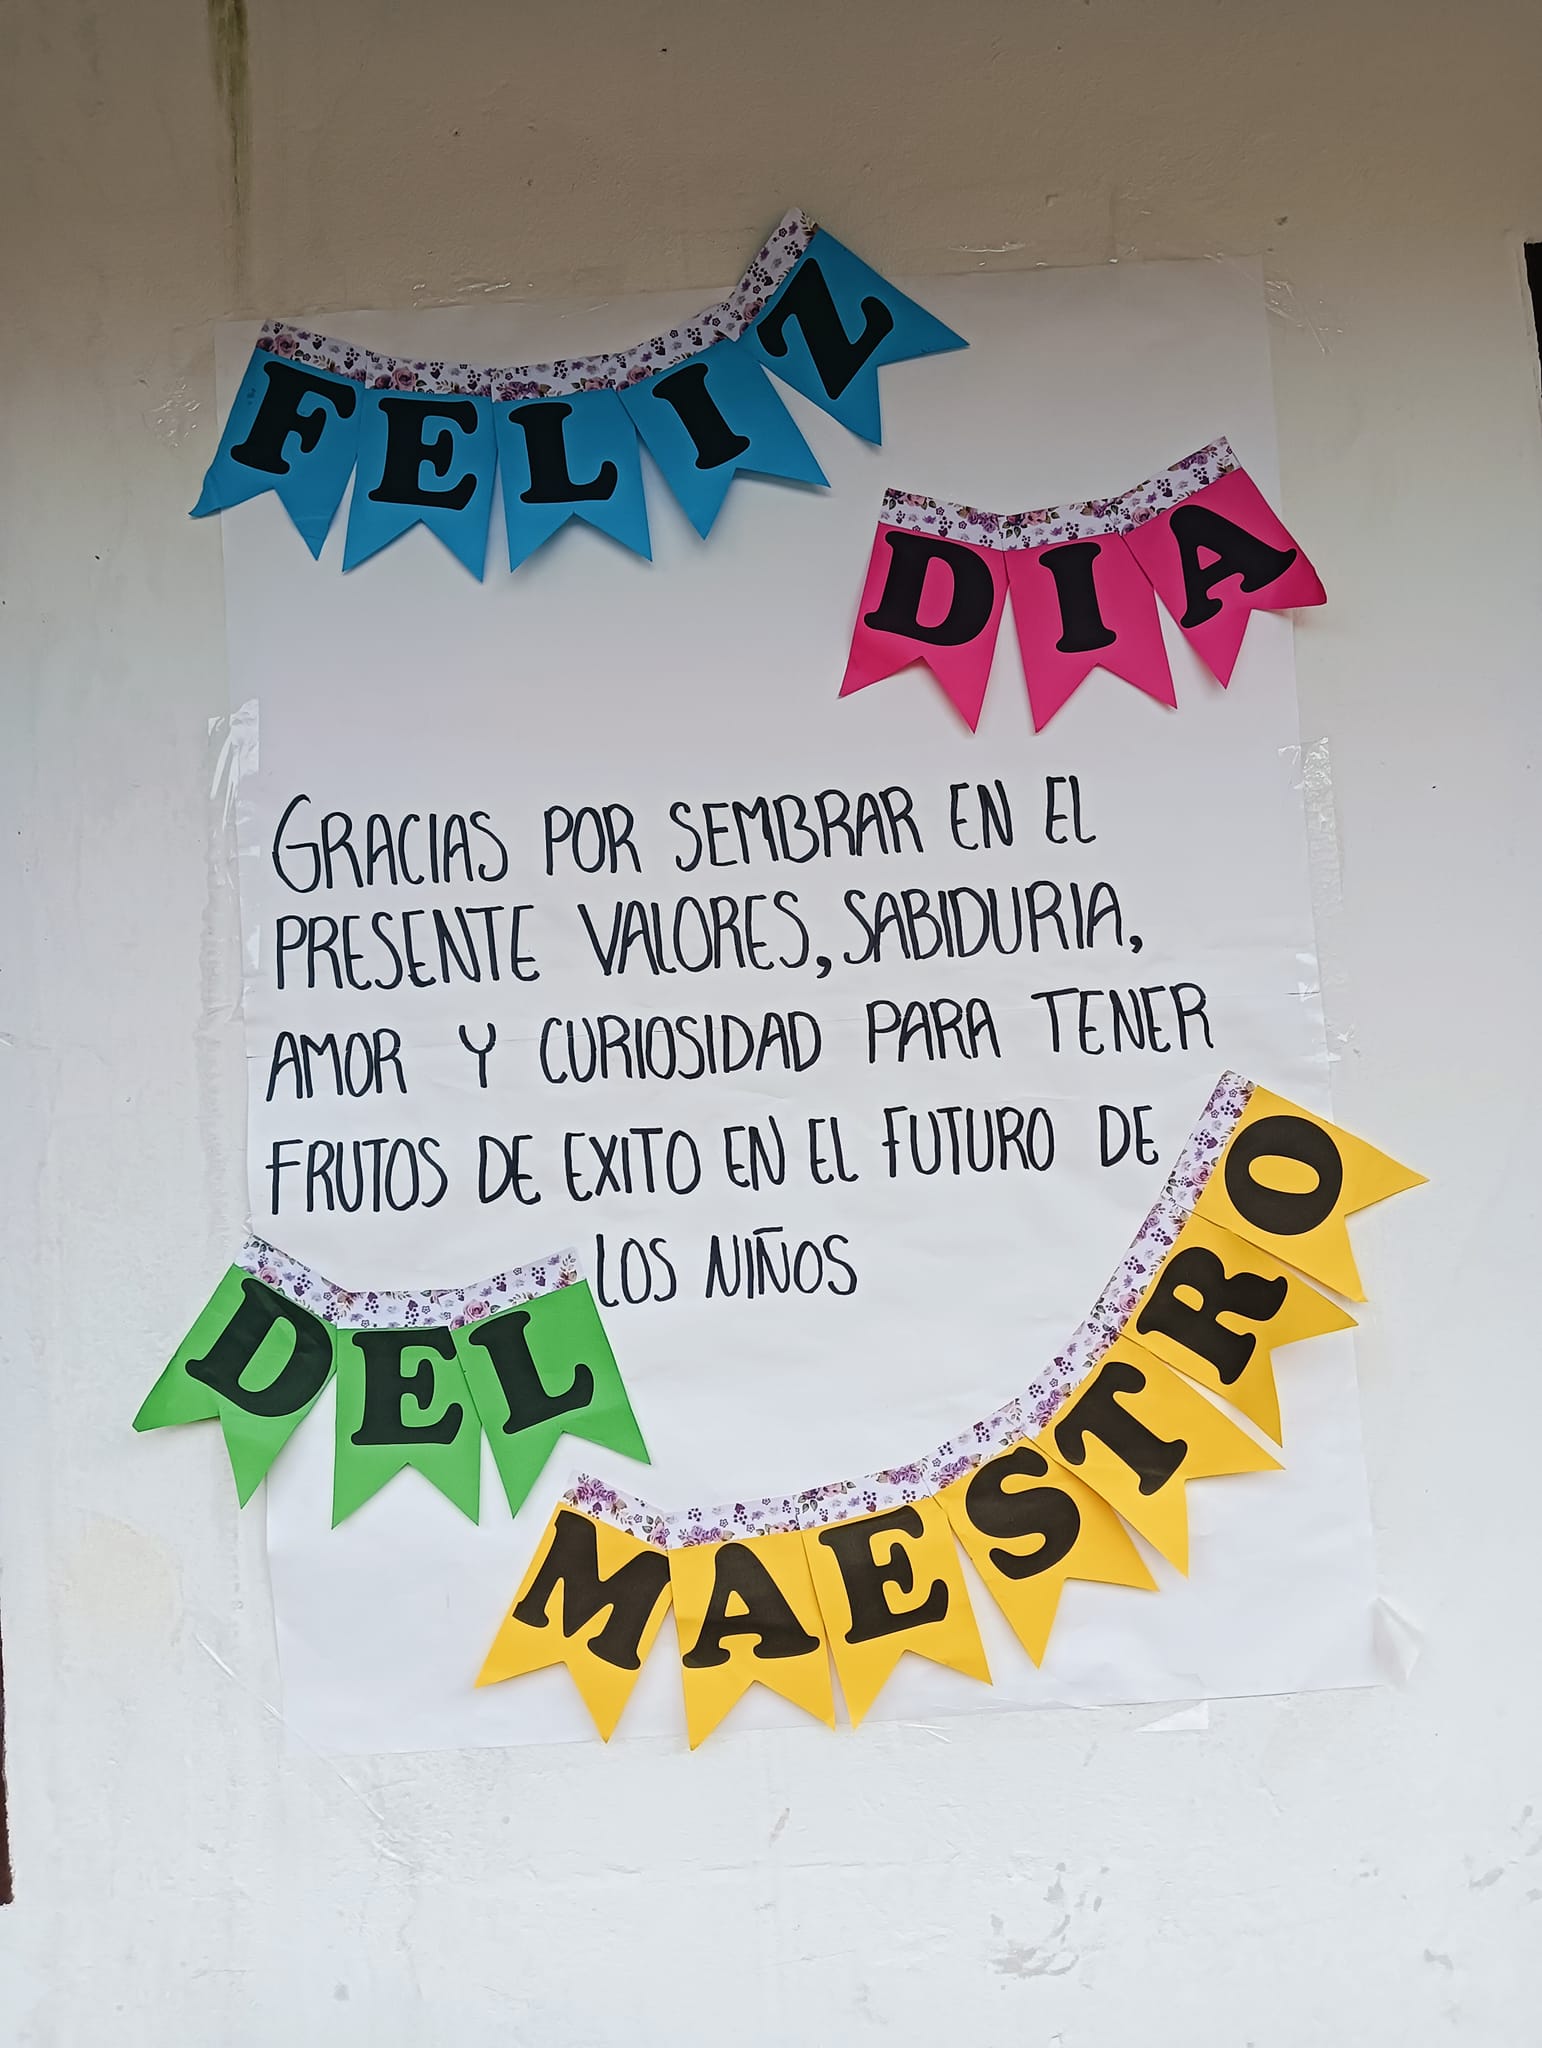 FELIZ
DIA
GRACIAS POR SEMBRAR EN EL
PRESENTE VALORES, SABIDURIA,
AMOR Y CURIOSIDAD PARA TENER
FRUTOS DE EXITO EN EL FUTURO DE
LOS NIÑOS
DEL
MAESTRO